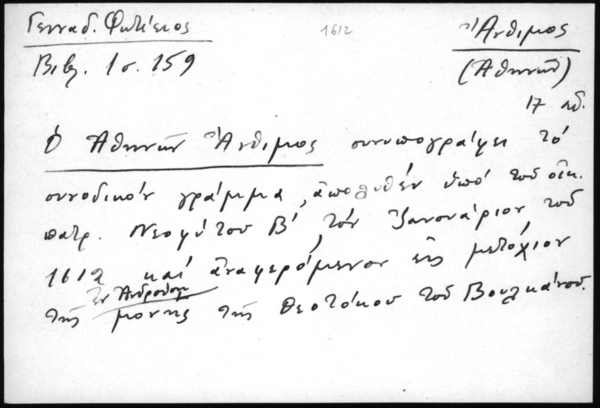 Γενναδ. Φωτίειος
1612
Ἄνθιμος
Βιβ. 1 σ. 159
(Ἀθηνῶν)
17 αἰ.
Ὁ Ἀθηνῶν Ἄνθιμος συνυπογράφει τό
συνοδικόν γράμμα, ἀπολυθέν ὑπό τοῦ οἰκ.
πατρ. Νεοφύτου Β΄, τόν Ἰανουάριον τοῦ
1612 καί ἀναφερόμενον εἰς μετόχιον
ἐν
τῆς μονῆς τῆς Θεοτόκου τοῦ Βουλκάνου.